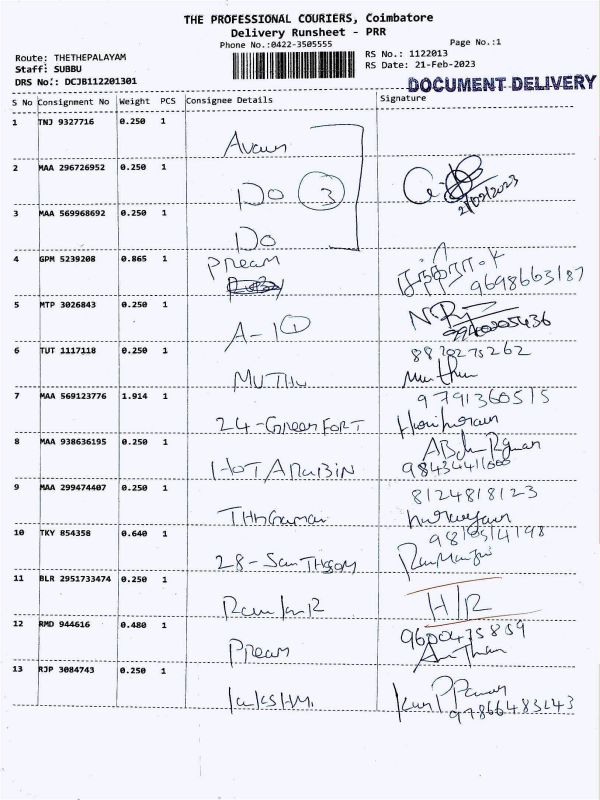 THE PROFESSIONAL COURIERS, Coimbatore
Delivery Runsheet - PRR
Phone No.:0422-3505555
Page No.:1
Route: THETHEPALAYAM
Staff: SUBBU
DRS No.: DCJB112201301
RS No.: 1122013
RS Date: 21-Feb-2023
DOCUMENT DELIVERY
S No Consignment No Weight PCS Consignee Details Signature
1 TNJ 9327716 0.250 1
2 MAA 296726952 0.250 1 Do 3
21/02/2023
3 MAA 569968692 0.250 1 Do
4 GPM 5239208 0.865 1 Pream
9698663187
5 MTP 3026843 0.250 1 A-1 1
6 TUT 1117118 0.250 1 MUTHU
8870275262
Muthu
7 MAA 569123776 1.914 1 24-Green FORT
9791360515
8 MAA 938636195 0.250 1 HOT
9 MAA 299474407 0.250 1
8124818123
10 TKY 854358 0.640 1 28-
11 BLR 2951733474 0.250 1 H/R
12 RMD 944616 0.480 1 Pream
9600475859
13 RJP 3084743 0.250 1